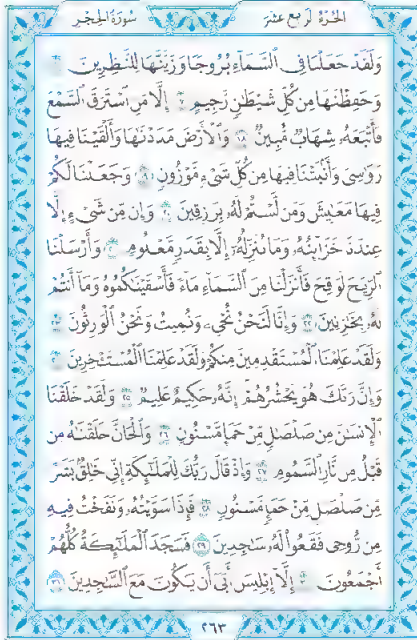 سُورَةُ الحِجْرِ
الجُزْءُ الرَّابِعَ عَشَرَ
وَلَقَدْ جَعَلْنَا فِي السَّمَاءِ بُرُوجًا وَزَيَّنَّاهَا لِلنَّاظِرِينَ ١٦
وَحَفِظْنَاهَا مِن كُلِّ شَيْطَانٍ رَّجِيمٍ ١٧ إِلَّا مَنِ اسْتَرَقَ السَّمْعَ
فَأَتْبَعَهُ شِهَابٌ مُّبِينٌ ١٨ وَالْأَرْضَ مَدَدْنَاهَا وَأَلْقَيْنَا فِيهَا
رَوَاسِيَ وَأَنبَتْنَا فِيهَا مِن كُلِّ شَيْءٍ مَّوْزُونٍ ١٩ وَجَعَلْنَا لَكُمْ
فِيهَا مَعَايِشَ وَمَن لَّسْتُمْ لَهُ بِرَازِقِينَ ٢٠ وَإِن مِّن شَيْءٍ إِلَّا
عِندَنَا خَزَائِنُهُ وَمَا نُنَزِّلُهُ إِلَّا بِقَدَرٍ مَّعْلُومٍ ٢١ وَأَرْسَلْنَا
الرِّيَاحَ لَوَاقِحَ فَأَنزَلْنَا مِنَ السَّمَاءِ مَاءً فَأَسْقَيْنَاكُمُوهُ وَمَا أَنتُمْ
لَهُ بِخَازِنِينَ ٢٢ وَإِنَّا لَنَحْنُ نُحْيِي وَنُمِيتُ وَنَحْنُ الْوَارِثُونَ ٢٣
وَلَقَدْ عَلِمْنَا الْمُسْتَقْدِمِينَ مِنكُمْ وَلَقَدْ عَلِمْنَا الْمُسْتَأْخِرِينَ ٢٤
وَإِنَّ رَبَّكَ هُوَ يَحْشُرُهُمْ إِنَّهُ حَكِيمٌ عَلِيمٌ ٢٥ وَلَقَدْ خَلَقْنَا
الْإِنسَانَ مِن صَلْصَالٍ مِّنْ حَمَإٍ مَّسْنُونٍ ٢٦ وَالْجَانَّ خَلَقْنَاهُ مِن
قَبْلُ مِن نَّارِ السَّمُومِ ٢٧ وَإِذْ قَالَ رَبُّكَ لِلْمَلَائِكَةِ إِنِّي خَالِقٌ بَشَرًا
مِّن صَلْصَالٍ مِّنْ حَمَإٍ مَّسْنُونٍ ٢٨ فَإِذَا سَوَّيْتُهُ وَنَفَخْتُ فِيهِ
مِن رُّوحِي فَقَعُوا لَهُ سَاجِدِينَ ٢٩ فَسَجَدَ الْمَلَائِكَةُ كُلُّهُمْ
أَجْمَعُونَ ٣٠ إِلَّا إِبْلِيسَ أَبَى أَن يَكُونَ مَعَ السَّاجِدِينَ ٣١
٢٦٣